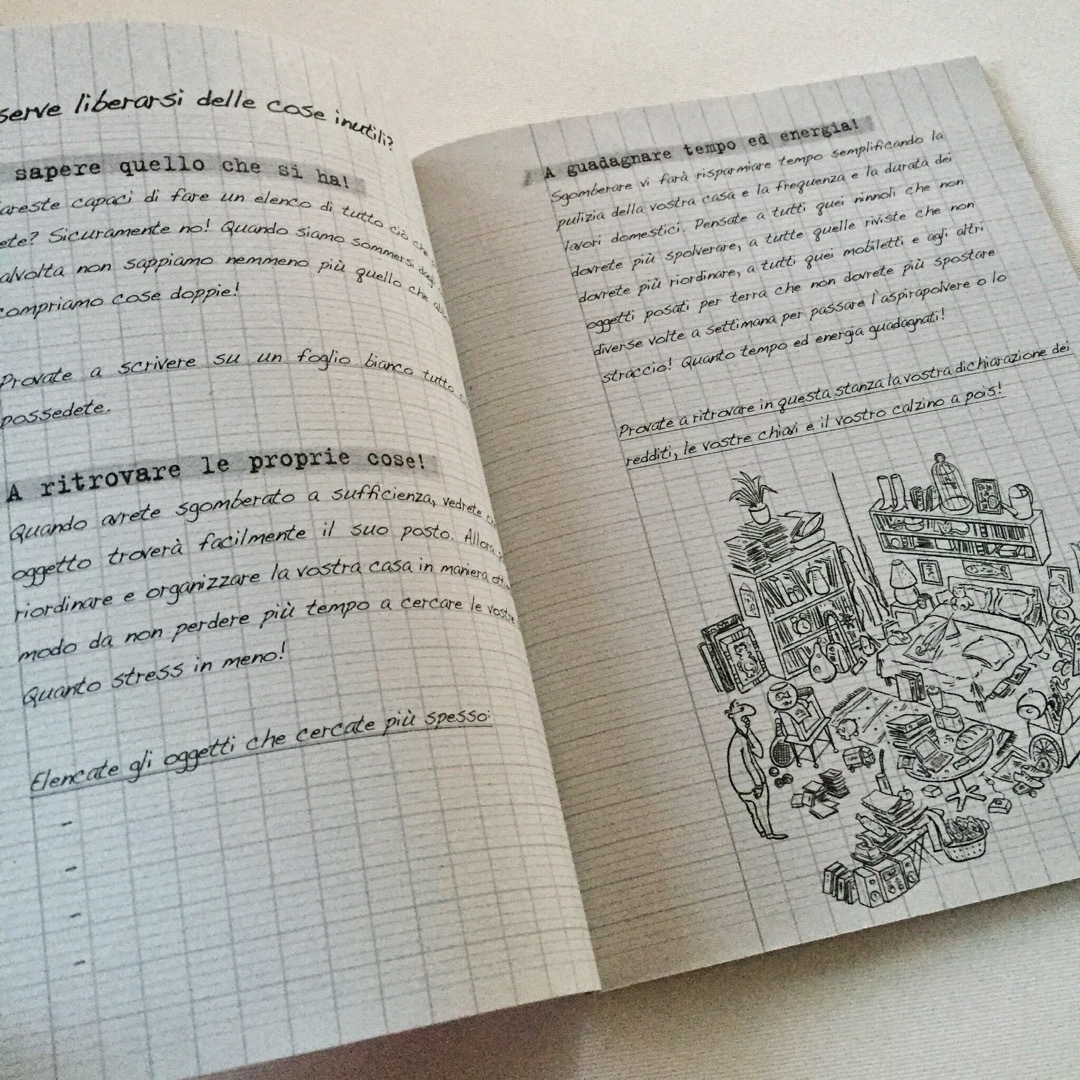 serve liberarsi delle cose inutili?
sapere quello che si ha!
areste capaci di fare un elenco di tutto ciò che
ete? Sicuramente no! Quando siamo sommersi dagli
alvolta non sappiamo nemmeno più quello che
compriamo cose doppie!
Provate a scrivere su un foglio bianco tutto
possedete.
A ritrovare le proprie cose!
Quando avrete sgomberato a sufficienza, vedrete
oggetto troverà facilmente il suo posto. Allora
riordinare e organizzare la vostra casa in maniera
modo da non perdere più tempo a cercare le vostre
Quanto stress in meno!
Elencate gli oggetti che cercate più spesso:
-
-
-
-
A guadagnare tempo ed energia!
Sgomberare vi farà risparmiare tempo semplificando la
pulizia della vostra casa e la frequenza e la durata dei
lavori domestici. Pensate a tutti quei ninnoli che non
dovrete più spolverare, a tutte quelle riviste che non
dovrete più riordinare, a tutti quei mobiletti e agli altri
oggetti posati per terra che non dovrete più spostare
diverse volte a settimana per passare l'aspirapolvere o lo
straccio! Quanto tempo ed energia guadagnati!
Provate a ritrovare in questa stanza la vostra dichiarazione dei
redditi, le vostre chiavi e il vostro calzino a pois!